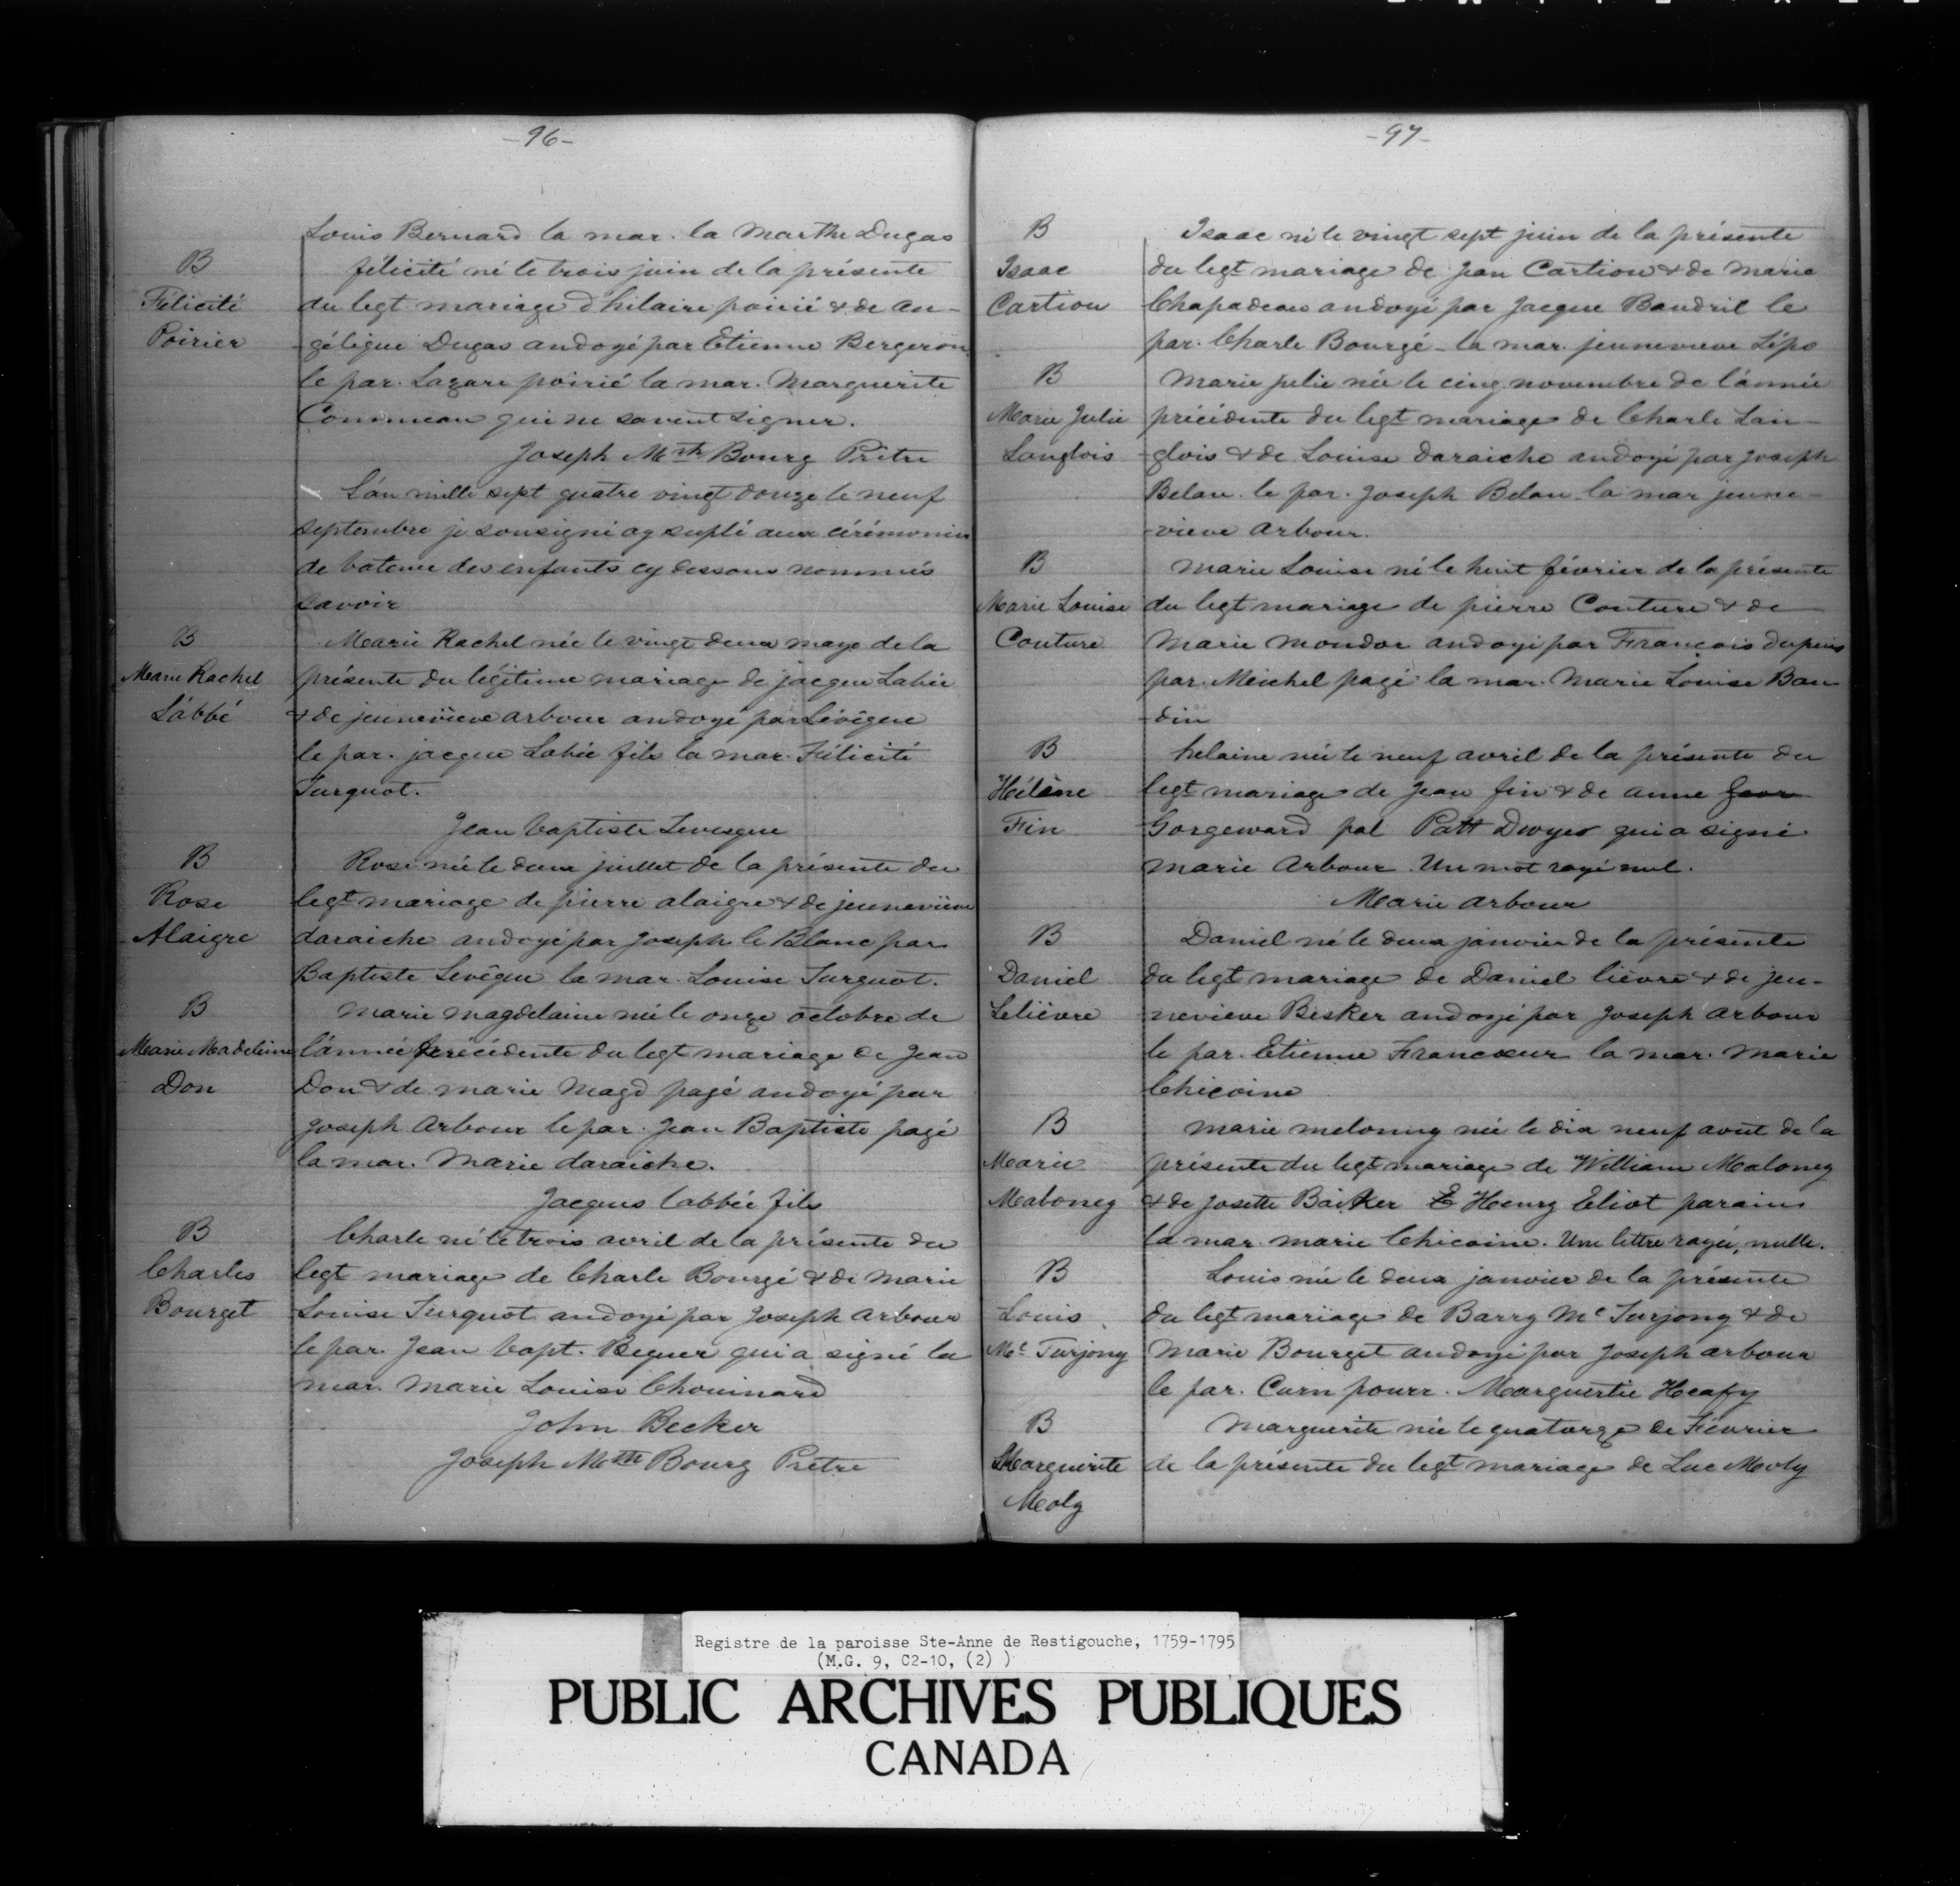 -96-
Louis Bernard la mar. la Marthe Dugas
B
Félicité
Poirier
félicité né le trois juin de la présente
du legt mariage d'hilaire poirié & de an-
-gélique Dugas andoyé par Etienne Bergeron
le par. Lazare poirié la mar. Marguerite
Commeau qui ne savent signer.
Joseph Mth Bourg Prêtre
L'an mille sept quatre vingt douze le neuf
septembre je sousigné ay suplé aux cérémonies
de bateme des enfants cy dessous nommés
savoir
B
Marie Rachel
Lábbé
Marie Rachel née le vingt deux maye de la
présente du légitime mariage de jacque Labée
& de jeuneviève arbour andoyé par Lévêque
le par. jacque Labée fils la mar. Félicité
Turquot.
Jean baptiste Levesque
B
Rose
Alaigre
Rose née le deux juillet de la présente du
legt mariage de pierre alaigre & de jeuneviève
daraiche andoyé par Joseph le Blanc par
Baptiste Levêque la mar. Louise Turquot.
B
Marie Madeleine
Don
Marie magdelaine née le onze octobre de
l'année précédente du legt mariage de Jean
Don & de marie Magd pagé andoyé par
Joseph Arbour le par. Jean Baptiste pagé
la mar. Marie daraiche.
Jacques labbée fils
B
Charles
Bourget
Charle né le trois avril de la présente du
legt mariage de Charle Bourgé & de Marie
Louise Turquot andoyé par Joseph arbour
le par. Jean bapt. Bequer qui a signé la
mar. Marie Louise Chouinard
John Becker
Joseph Mth Bourg Prêtre
-97-
B
Isaac
Cartion
Isaac né le vingt sept juin de la présente
du legt mariage de Jean Cartion & de Marie
Chapadeau andoyé par Jacque Baudril le
par. Charle Bourgé - la mar. jeunevieve Lépo
B
Marie Julie
Langlois
Marie julie née le cinq novembre de l'année
précédente du legt mariage de Charle Lan-
-glois & de Louise daraiche andoyé par Joseph
Belau. le par. Joseph Belau la mar jeune-
-vieve arbour.
B
Marie Louise
Couture
Marie Louise né le huit février de la présente
du legt mariage de pierre Couture & de
Marie mondor andoyé par François dupuis
par. Meichel pagé la mar. Marie Louise Bau
-din
B
Hélène
Fin
helaine née le neuf avril de la présente du
legt mariage de Jean fin & de anne
Gorgeward pal Patt Dwyer qui a signé
Marie Arbour. Un mot rayé nul.
Marie arbour
B
Daniel
Lelièvre
Daniel né le deux janvier de la présente
du legt mariage de Daniel lièvre & de jeu-
nevieve Besker andoyé par Joseph arbour
le par. Etienne Francoeur la mar. Marie
Chicoine
B
Marie
Maloney
Marie meloney née le dix neuf août de la
présente du legt mariage de William Maloney
& de Josette Baiker E Henry Eliot parains
la mar. marie Chicoine. Une lettre rayée, nulle.
B
Louis
Mc Turjony
Louis née le deux janvier de la présente
du legt mariage de Barry Mc Turjony & de
Marie Bourget andoyé par Joseph arbour
le par. Curn pourr. Marguertie Heafy
B
Marguerite
Moly
Marguerite née le quatorze de Février
de la présente du legt mariage de Luc Moly
Registre de la paroisse Ste-Anne de Restigouche, 1759-1795
(M.G. 9, C2-10, (2) )
PUBLIC ARCHIVES PUBLIQUES
CANADA